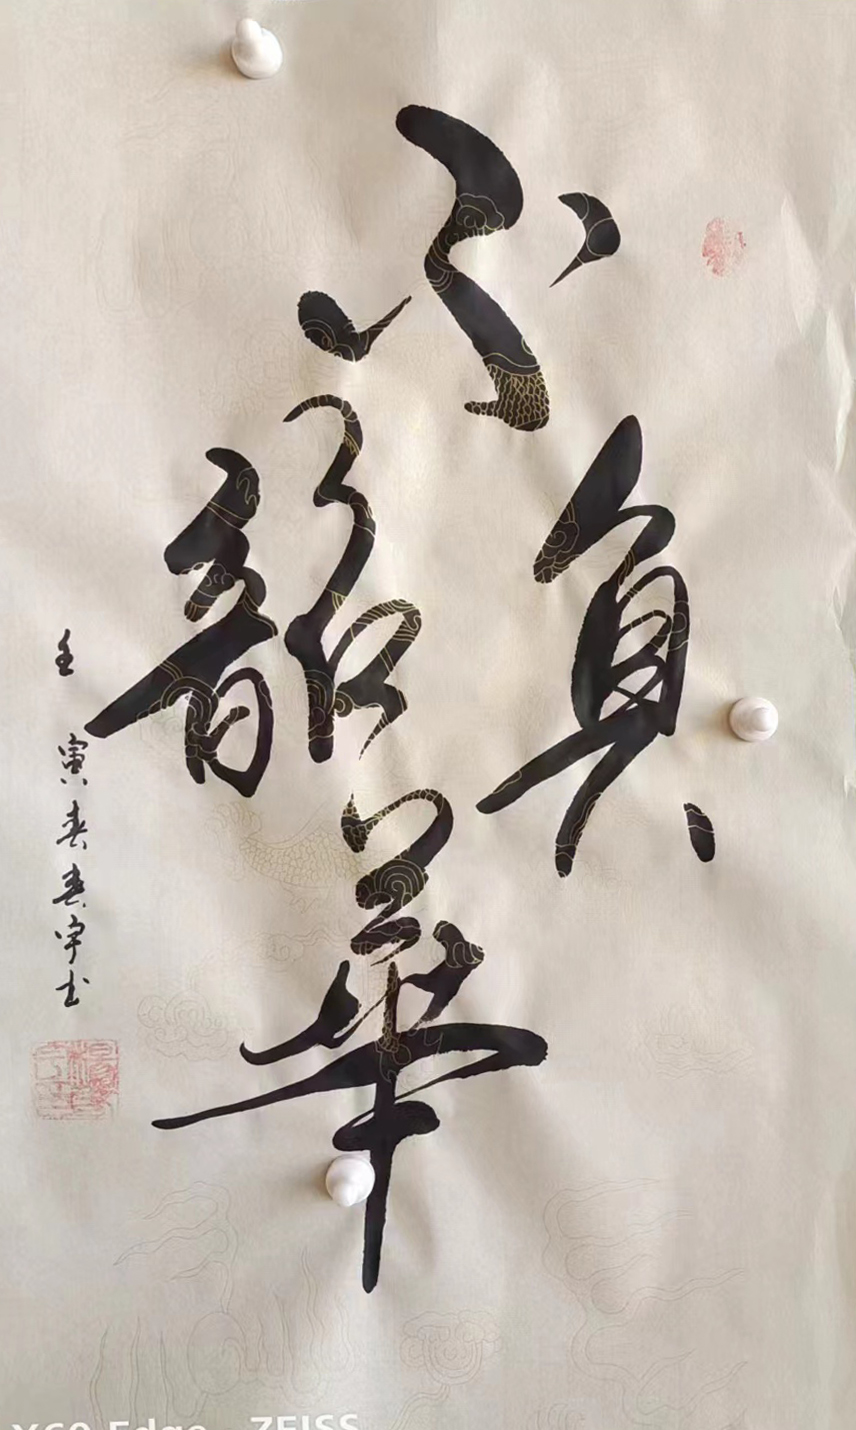 不负韶華
壬寅春春宇书
X60 Edge ZEISS